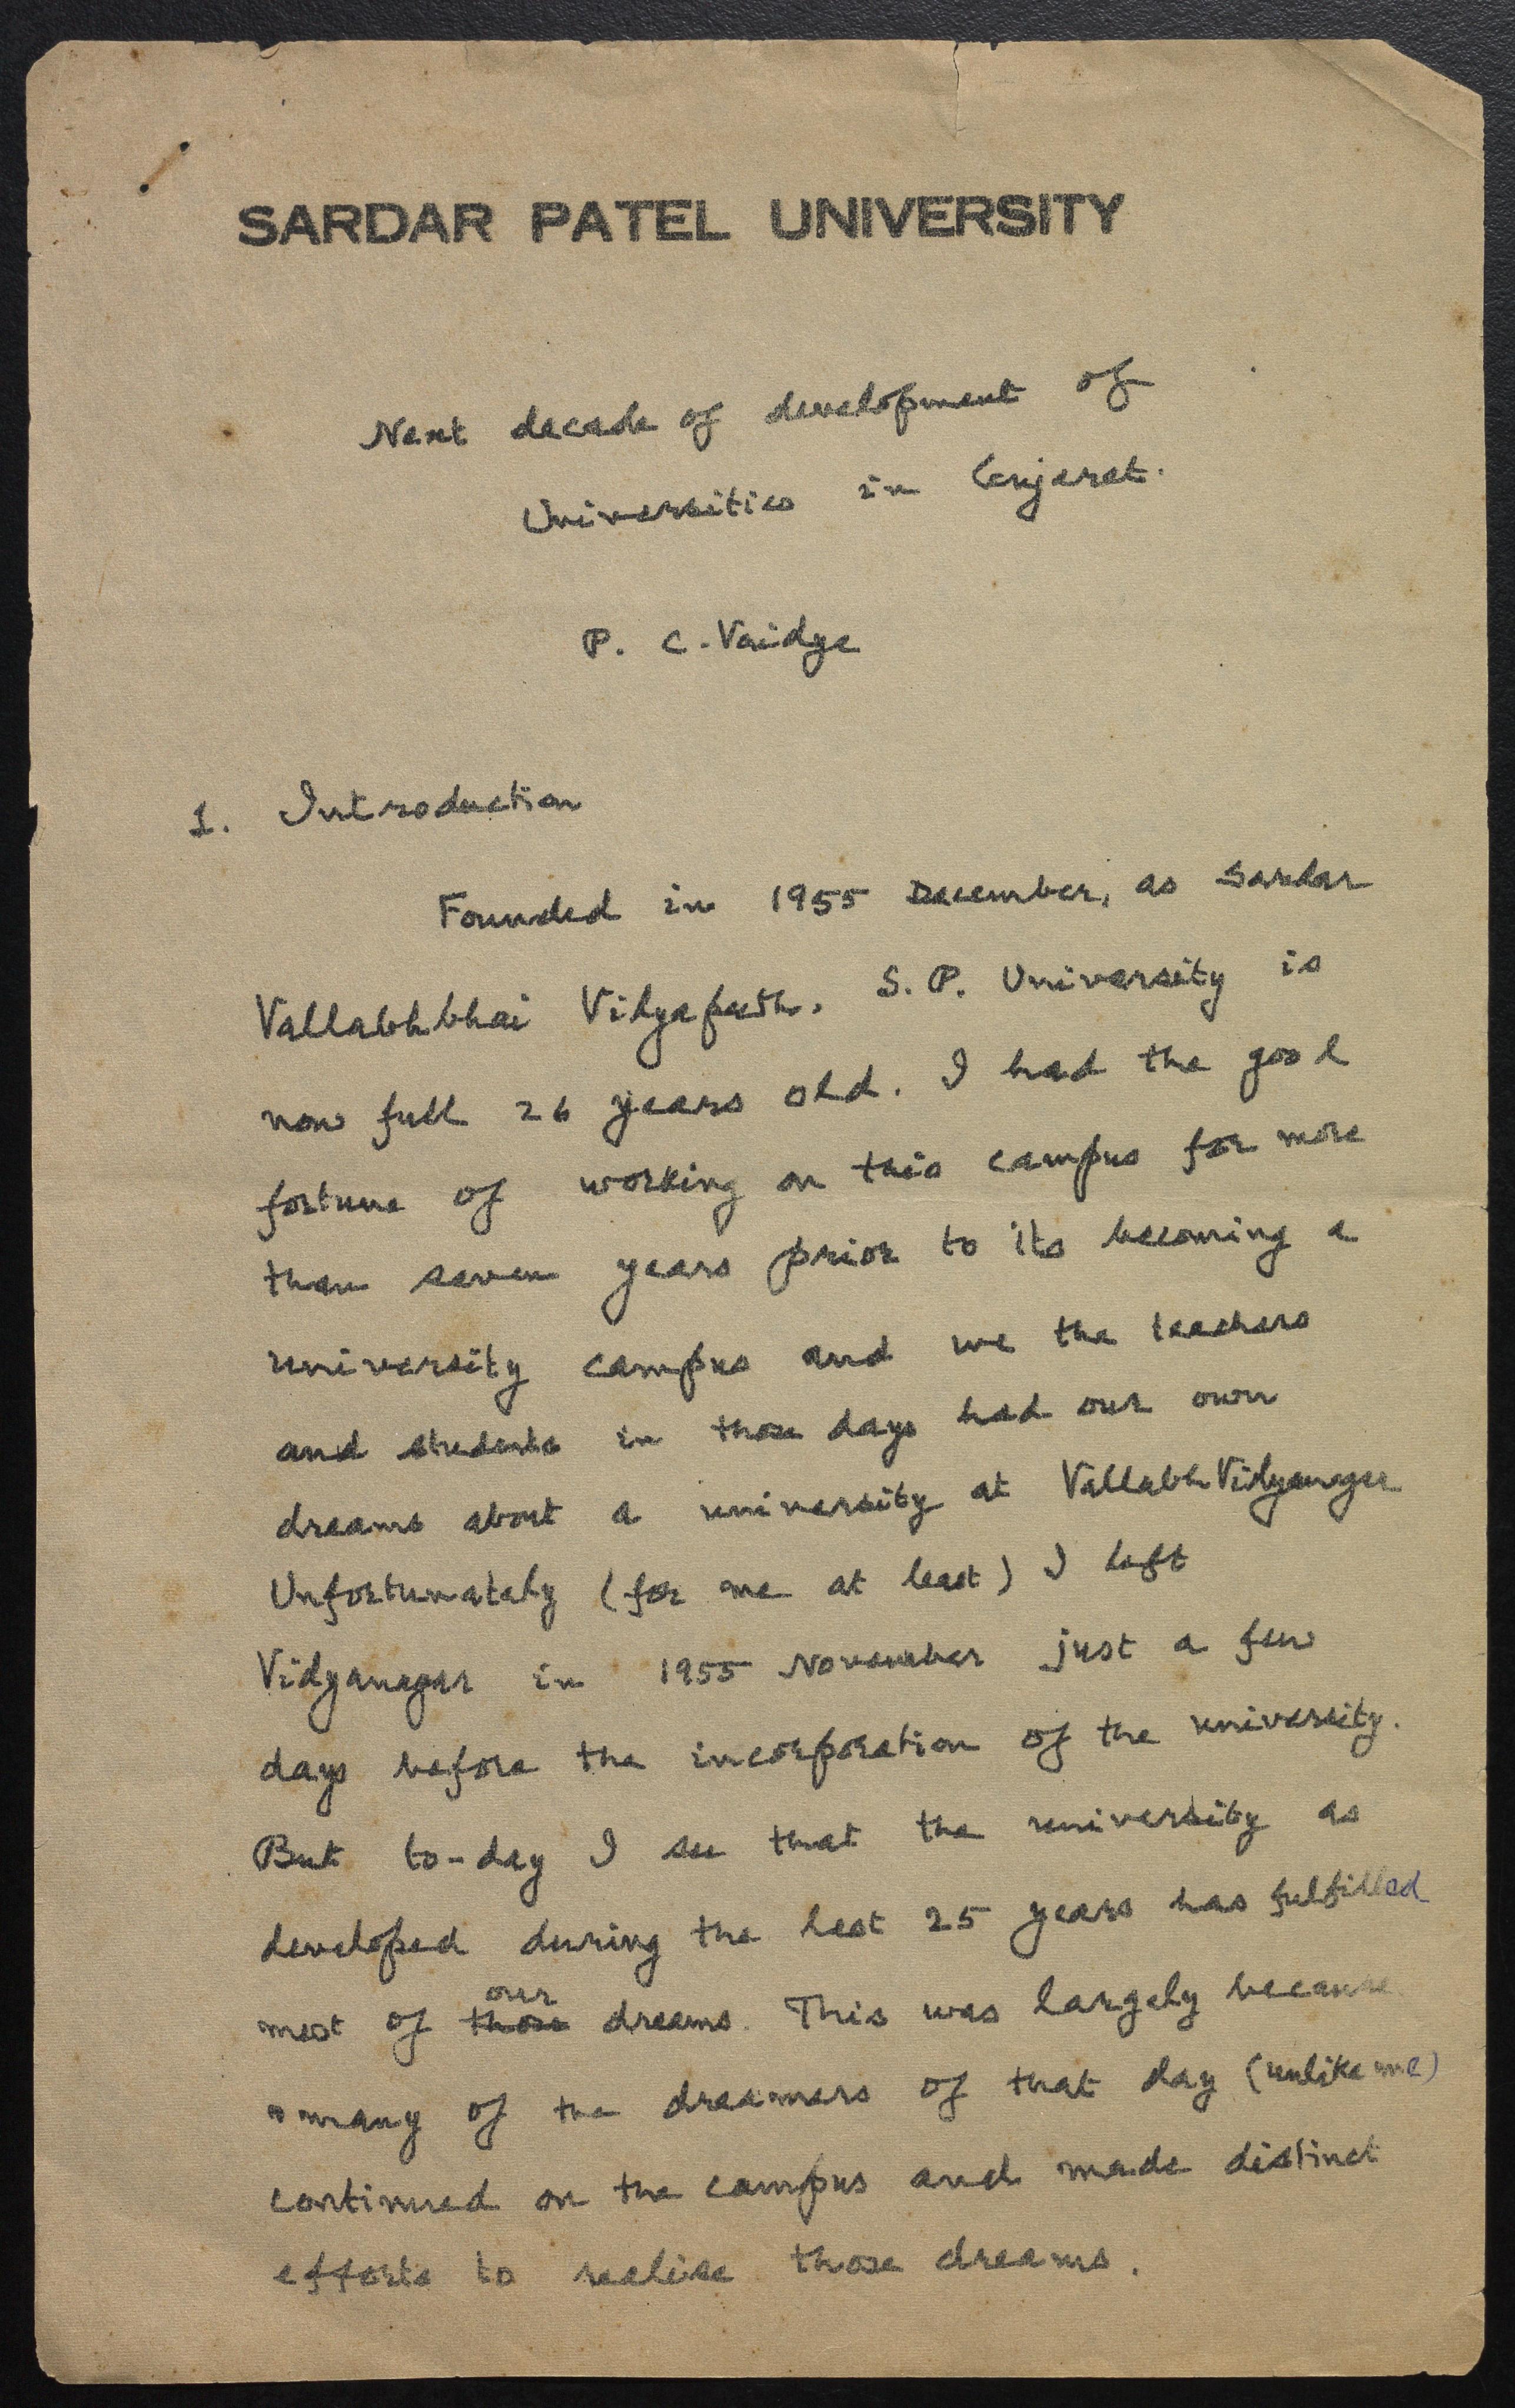 SARDAR PATEL UNIVERSITY
Next decade of development of
Universities in Gujarat.
P. C. Vaidya
1. Introduction
Founded in 1955 December, as Sardar
Vallabhbhai Vidyapeeth, S. P. University is
now full 26 years old. I had the good
fortune of working on this campus for more
than seven years prior to its becoming a
university campus and we the teachers
and students in those days had our own
dreams about a university at Vallabh Vidyanagar
Unfortunately (for me at least) I left
Vidyanagar in 1955 November just a few
days before the incorporation of the university.
But to-day I see that the university as
developed during the last 25 years has fulfilled
our
most of those dreams. This was largely because
many of the dreamers of that day (unlike me)
continued on the campus and made distinct
efforts to realise those dreams.